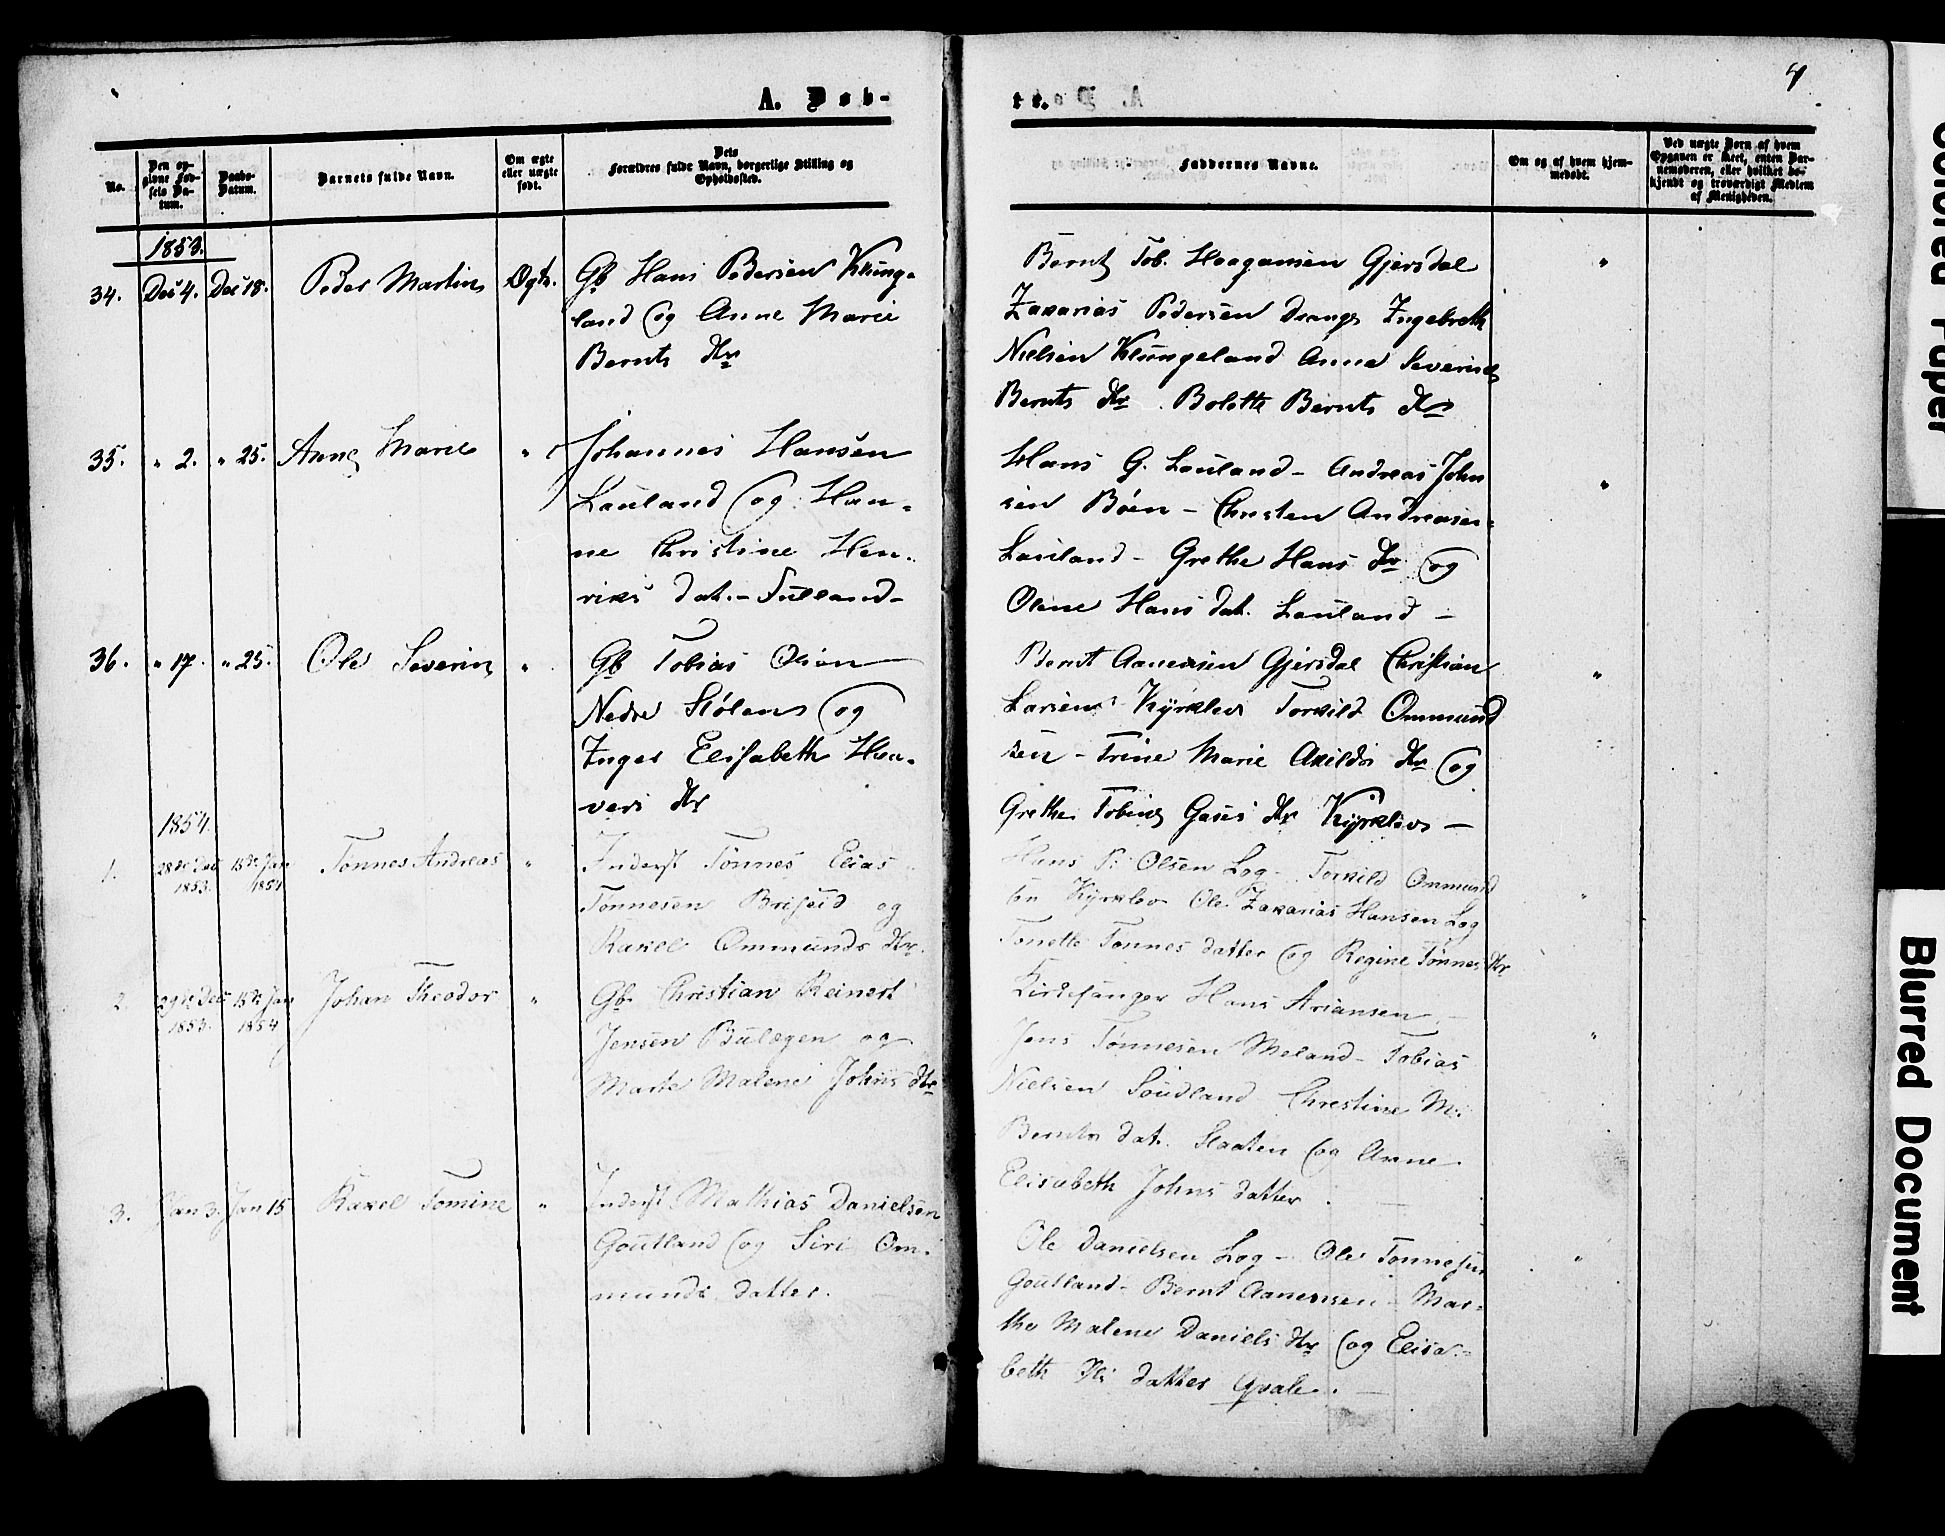 A. Døb-
No.
Den op-
givne Fød-
sels Da-
tum.
Daabs-
Datum.
Barnets fulde Navn.
Om ægte
eller uægte
født.
Dets
Forældres fulde Navn, borgerlige Stilling og
Opholdssted.
1853.
34. Dec 4. Dec 18. Peder Martin Ægte.
Gb Hans Pedersen Klunge-
land og Anne Marie
Bernts Dtr
35. " 2. " 25. Anne Marie "
Johannes Hansen
Lauland og Han-
ne Christine Hen-
riks dat. -
36. " 17. " 25. Ole Severin "
Gb Tobias Olsen
Nedre Stølen og
Inger Elisabeth Haa-
vers Dtr
1854.
1. 28de Dec 1853. 15de Jan 1854 Tønnes Andreas "
Inderst Tønnes Elias
Tønnesen Briseid og
Rakel Ommunds Dtr.
2. 29de Dec 1853. 15de Jan 1854 Johan Theodor "
Gb. Christian Reinert
Jensen Bulægen og
Marte Malene Johns Dtr
3. Jan 3. Jan 15 Rakel Tomine "
Inderst Mathias Danielsen
Goutland og Siri Om-
munds datter.
te. 4
Faddernes Navne.
Om og af hvem hjem-
medøbt.
Ved uægte Børn af hvem
Opgaven er skeet, enten Bar-
nemoderen, eller hvilket be-
kjendt og troværdigt Medlem
af Menigheden.
Bernt Tob. Haagansen Gjersdal "
Zakarias Pedersen Drange Ingebreth
Nielsen Klungeland Anne Severine
Bernts Dtr. Bolette Bernts Dtr
Hans G. Lauland - Andreas John
sen Bøen - Christen Andreasen "
Lauland - Grethe Hans Dtr og
Oline Hans dat. Lauland -
Bernt Aanensen Gjersdal Christian "
Larsen Kyrklev Torkild Ommund
sen - Trine Marie Askilds Dtr og
Grethe Tobine Gases Dtr Kyrklev -
Hans P. Olsen Log - Torkild Ommund
sen Kyrklev Ole Zakarias Hansen Log "
Tonette Tønnes datter og Regine Tønnes Dtr
Kirkesanger Hans Ariansen -
Jens Tønnesen Meland - Tobias "
Nielsen Soudland Christine M.
Bernts dat. Slaaten og Anne
Elisabeth Johns datter. -
Ole Danielsen Log - Ole Tønnesen "
Goutland - Bernt Aanensen - Mar-
the Malene Daniels Dtr og Elisa-
beth datter Qvale. -
Colored Paper
Blurred Document